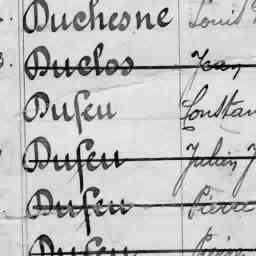 Duchesne Louis
Duclos Jean
Dufeu Constan
Dufeu Julien J
Dufeu Pierre
Dufeu